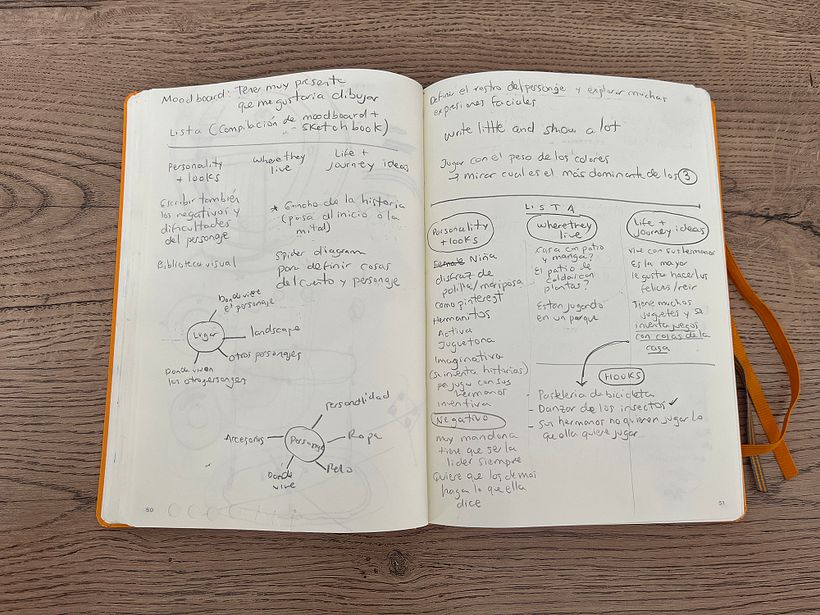 Moodboard: Tener muy presente
que me gustaria dibujar
Lista (Compilación de moodboard +
sketchbook)
Personality
+ looks
where they
live
Life +
journey ideas
Escribir también
los negativos y
dificultades
del personaje
* Gancho de la historia
(pasa al inicio o la
mitad)
Biblioteca visual
Spider diagram
para definir cosas
del cuento y personaje
Donde vive
el personaje
Lugar
landscape
otros personajes
Donde viven
los otros personajes
Personalidad
Accesorios
Personaje
Ropa
Donde
vive
Pelo
50
Definir el rostro del personaje y explorar muchas
expresiones faciales
write little and show a lot
Jugar con el peso de los colores
→ mirar cual es el más dominante de los 3
LISTA
Personality
+ looks
where they
live
Life +
journey ideas
Niña
disfraz de
polilla/mariposa
como pinterest
Hermanitos
Activa
Juguetona
Imaginativa
(se inventa historias)
pa jugar con sus
hermanos
inventiva
Negativo
muy mandona
tiene que ser la
lider siempre
Quiere que los demas
haga lo que ella
dice
casa con patio
y manga?
El patio de
con
plantas?
Estan jugando
en un parque
Vive con sus hermanos
Es la mayor
le gusta hacerlos
felices/reir
Tiene muchos
juguetes y se
inventa juegos
con cosas de la
casa
HOOKS
- Pasteleria de bicicleta
- Danzar de los insectos ✓
- sus hermanos no quieren jugar lo
que ella quiere jugar
51